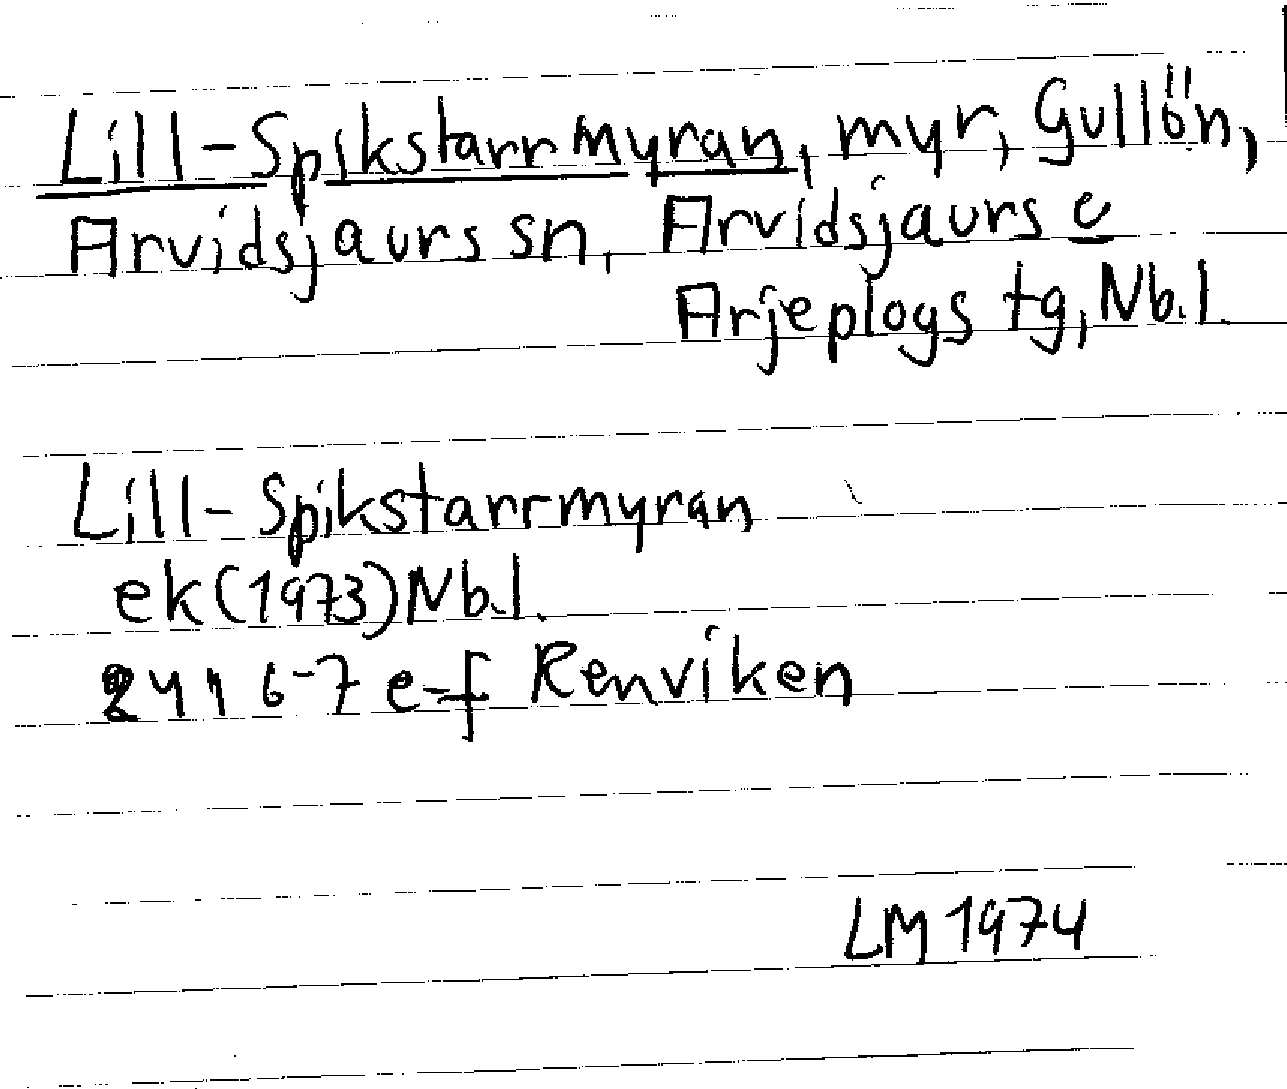 Lill-Spikstarrmyran, myr, Gullön,
Arvidsjaurs sn, Arvidsjaurs o
Arjeplogs tg, Nb.l.
Lill-Spikstarrmyran
ek(1973)Nb.l.
24I 6-7 e-f Renviken
LM 1974